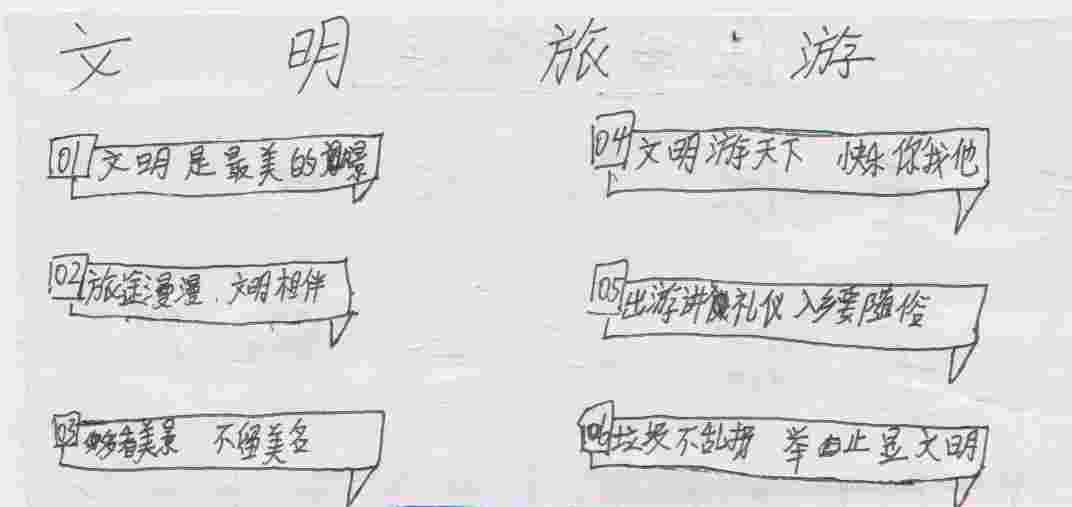 文明旅游
01 文明是最美的景
02 旅途漫漫.文明相伴
03 多看美景 不留美名
04 文明游天下 快乐你我他
05 出游讲礼仪 入乡要随俗
06 垃圾不乱扔 举止显文明